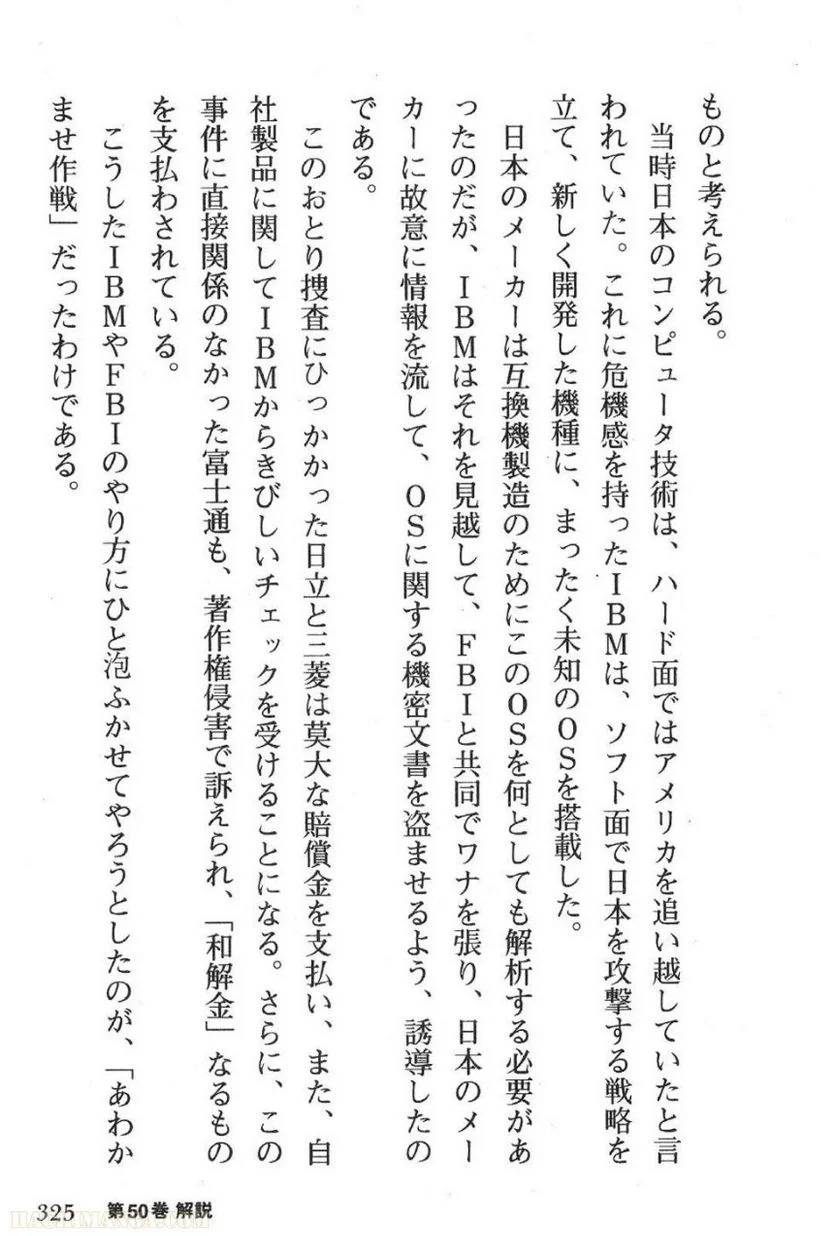 ものと考えられる。
当時日本のコンピュータ技術は、ハード面ではアメリカを追い越していたと言
われていた。これに危機感を持ったIBMは、ソフト面で日本を攻撃する戦略を
立て、新しく開発した機種に、まったく未知のOSを搭載した。
日本のメーカーは互換機製造のためにこのOSを何としても解析する必要があ
ったのだが、IBMはそれを見越して、FBIと共同でワナを張り、日本のメー
カーに故意に情報を流して、OSに関する機密文書を盗ませるよう、誘導したの
である。
このおとり捜査にひっかかった日立と三菱は莫大な賠償金を支払い、また、自
社製品に関してIBMからきびしいチェックを受けることになる。さらに、この
事件に直接関係のなかった富士通も、著作権侵害で訴えられ、「和解金」なるもの
を支払わされている。
こうしたIBMやFBIのやり方にひと泡ふかせてやろうとしたのが、「あわか
ませ作戦」だったわけである。
325 第50巻 解説